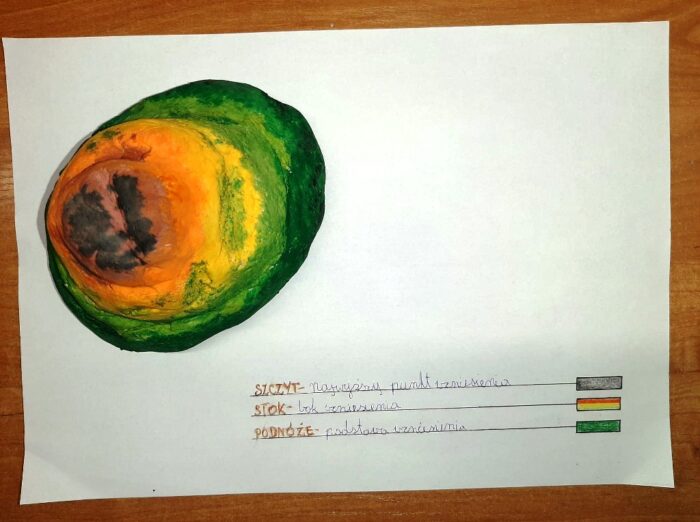 SZCZYT- najwyższy punkt wzniesienia
STOK- bok wzniesienia
PODNÓŻE- podstawa wzniesienia